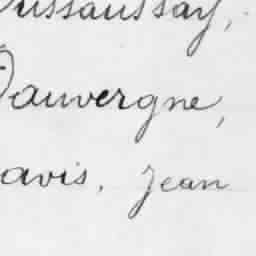 Dussaussay,
Dauvergne,
avis, Jean